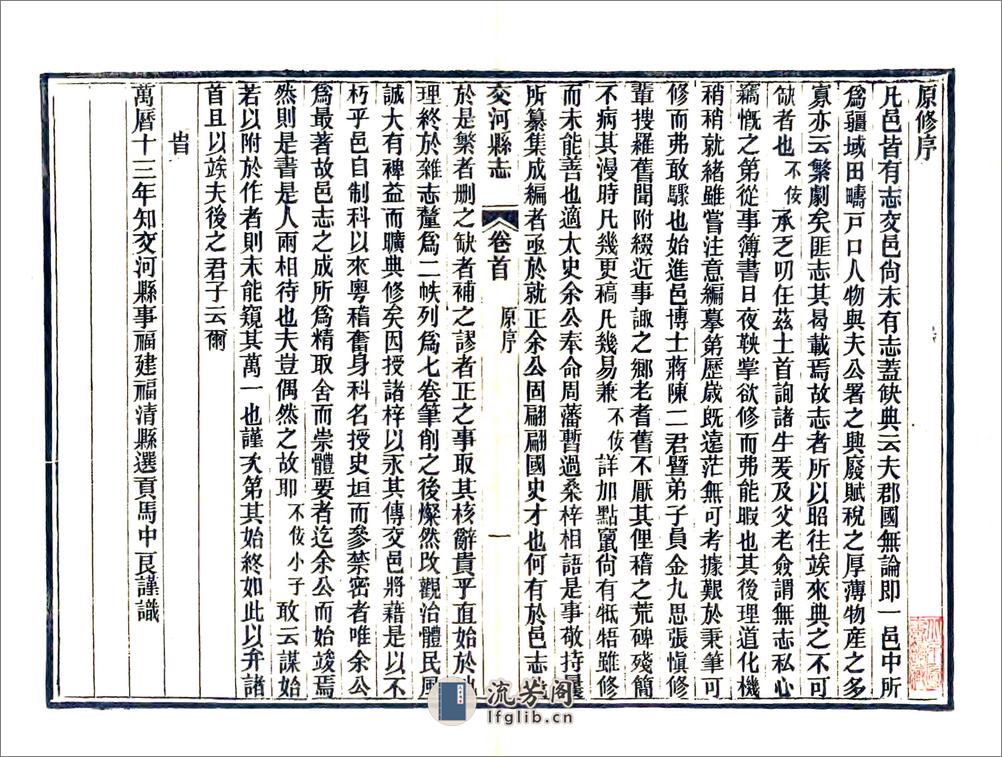 原修序
凡邑皆有志交邑尚未有志蓋缺典云夫郡國無論卽一邑中所
爲疆域田疇戸口人物與夫公署之興廢賦稅之厚薄物産之多
寡亦云繁劇矣匪志其曷載焉故志者所以昭往竢來典之不可
缺者也不佞承乏叨任茲土首詢諸生爰及父老僉謂無志私心
竊慨之第從事簿書日夜鞅掌欲修而弗能暇也其後理道化機
稍稍就緒雖嘗注意編摹第歷歲旣遠茫無可考據艱於秉筆可
修而弗敢驟也始進邑博士蔣陳二君暨弟子員金九思張愼修
輩搜羅舊聞附綴近事諏之鄉老耆舊不厭其俚稽之荒碑殘簡
不病其漫時凡幾更稿凡幾易兼不佞詳加點竄尙有牴牾雖修
而未能善也適太史余公奉命周藩暫過桑梓相語是事敬持曩
所纂集成編者亟於就正余公固翩翩國史才也何有於邑志
交河縣志
卷首
原序
一
於是繁者刪之缺者補之謬者正之事取其核辭貴乎直始於
理終於雜志釐爲二帙列爲七卷筆削之後燦然改觀治體民風
誠大有裨益而曠典修矣因授諸梓以永其傳交邑將藉是以不
朽乎邑自制科以來粵稽奮身科名授史垣而參禁密者唯余公
爲最著故邑志之成所爲精取舍而崇體要者迄余公而始竣焉
然則是書是人兩相待也夫豈偶然之故耶不佞小子敢云謀始
若以附於作者則未能窺其萬一也謹次第其始終如此以弁諸
首且以竢夫後之君子云爾
旹
萬曆十三年知交河縣事福建福清縣選貢馬中良謹識
流芳阁
lfglib.cn